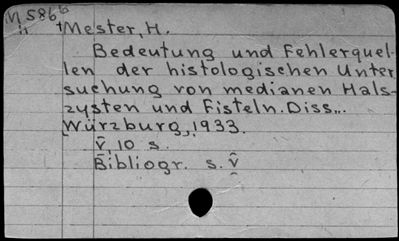 N 586 b
†Mester, H.
Bedeutung und Fehlerquel-
len der histologischen Unter
suchung von medianen Hals-
zysten und Fisteln. Diss...
Würzburg, 1933.
v, 10 s.
Bibliogr. s. v